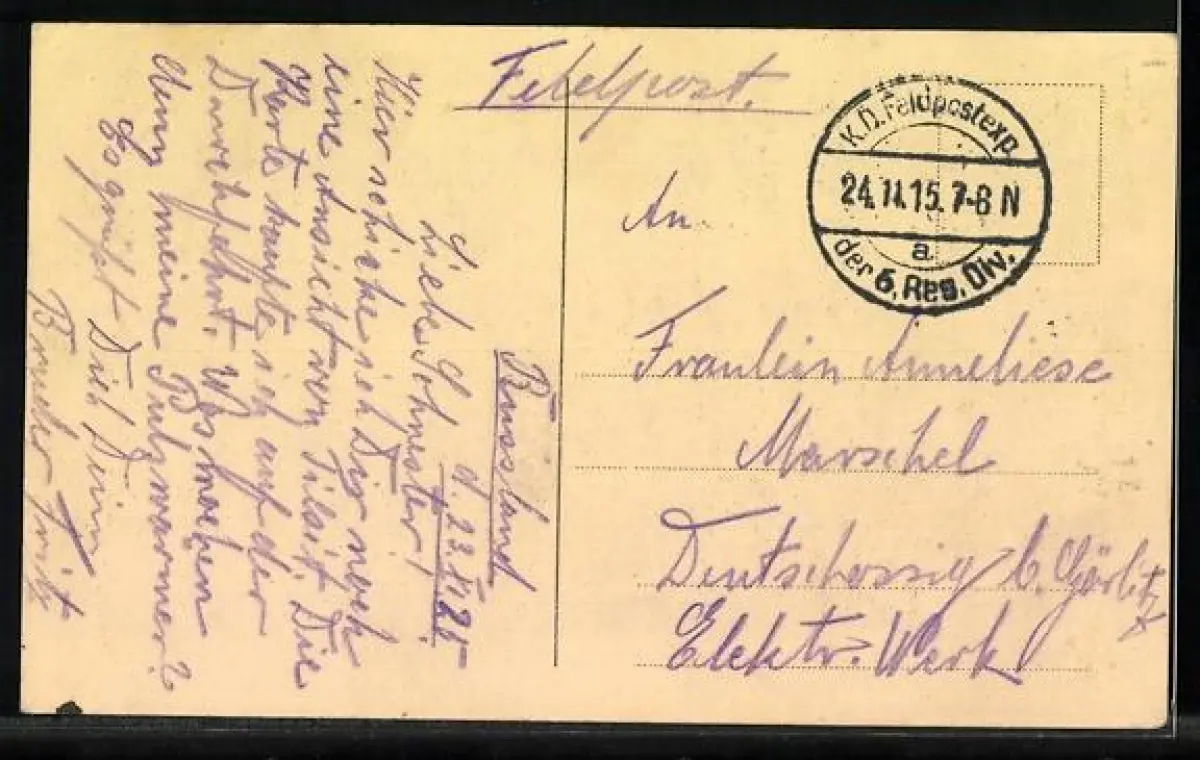 Feldpost.
K.D. Feldpostexp.
24.11.15. 7-8 N
a
der 6. Res. Div.
An
Fräulein Anneliese
Marschel
Deutschossig b. Görlitz
Elektr. Werk
Russland
d. 23.11.
Liebe Schwester!
Hier schicke ich Dir noch
eine Ansicht von Tilsit. Die
Karte kaufte ich auf der
Durchfahrt. Was machen
denn meine Pulswärmer?
Es grüßt Dich Dein
Bruder Fritz